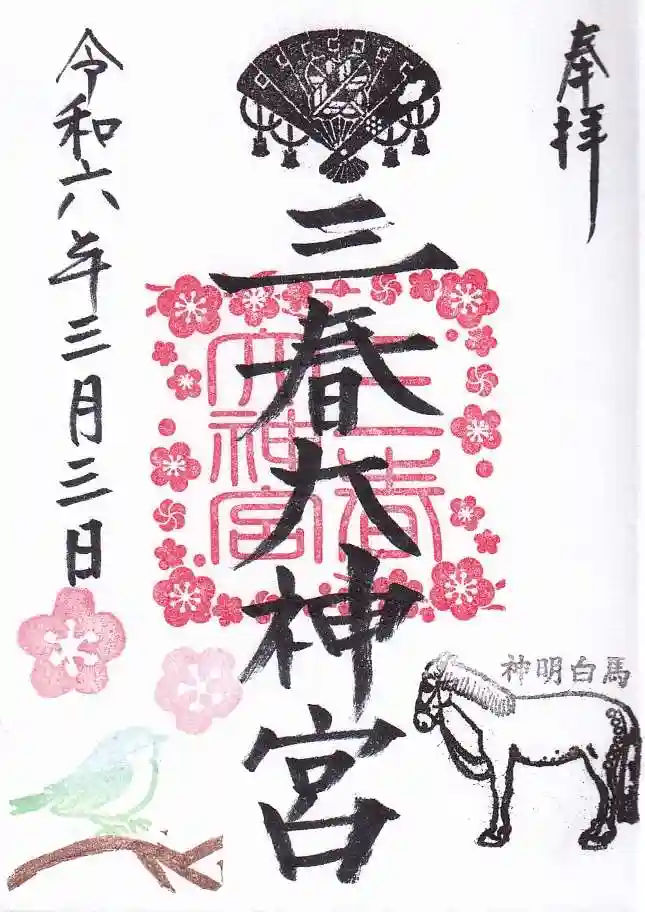 奉拝
三春大神宮
三春
大神宮
神明白馬
令和六年三月三日